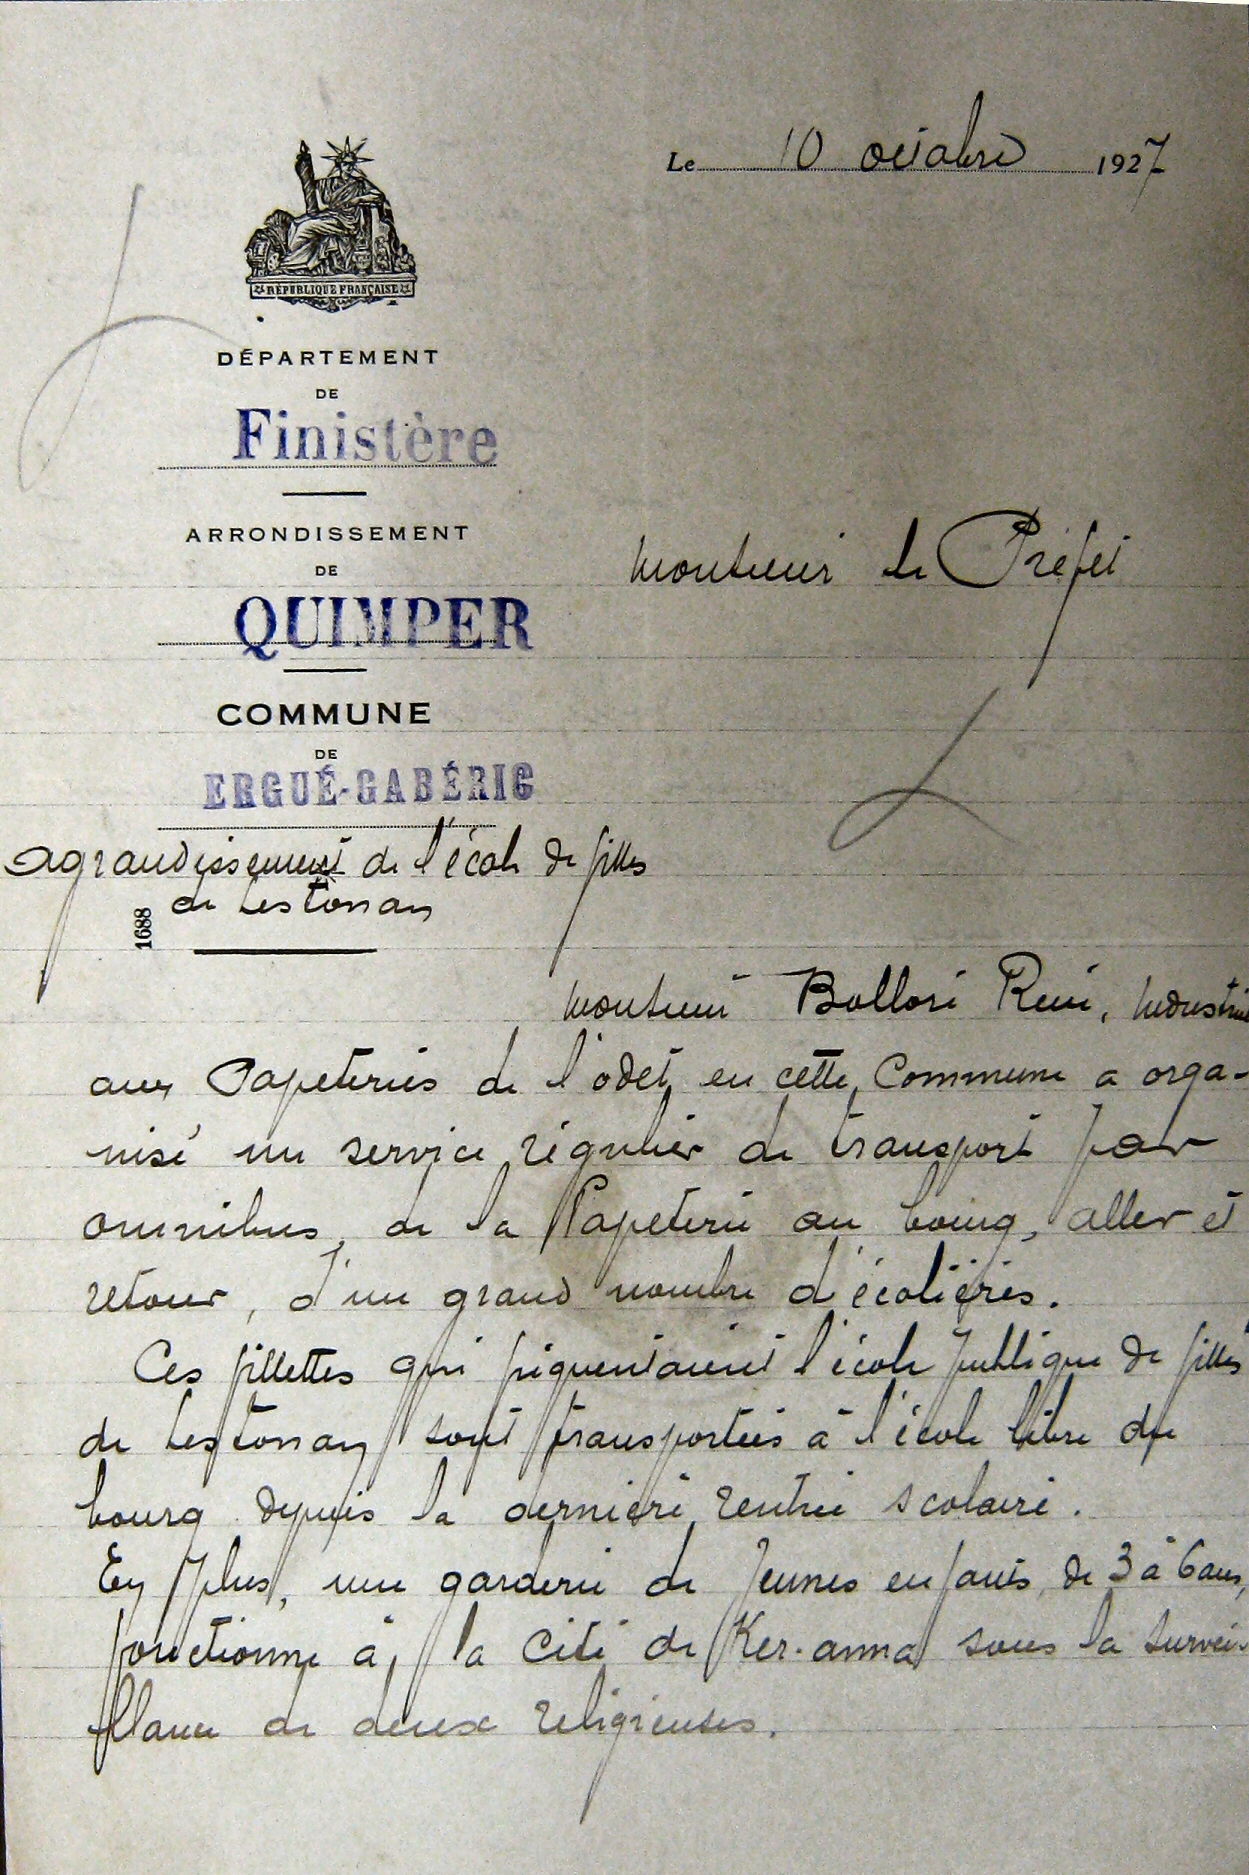 Le 10 octobre 1927
RÉPUBLIQUE FRANÇAISE
DÉPARTEMENT
DE
Finistère
ARRONDISSEMENT
DE
QUIMPER
COMMUNE
DE
ERGUÉ-GABÉRIC
Monsieur le Préfet
Agrandissement de l'école de filles
de Lestonan
1688
Monsieur Bolloré René, Industriel
aux Papeteries de l'Odet, en cette Commune a orga-
nisé un service régulier de transport par
omnibus, de la Papeterie au bourg, aller et
retour, d'un grand nombre d'écolières.
Ces fillettes qui fréquentaient l'école publique de filles
de Lestonan sont transportées à l'école libre du
bourg depuis la dernière rentrée scolaire.
En plus, une garderie de jeunes enfants, de 3 à 6 ans,
fonctionne à la Cité de Ker-anna sous la survei-
llance de deux religieuses.